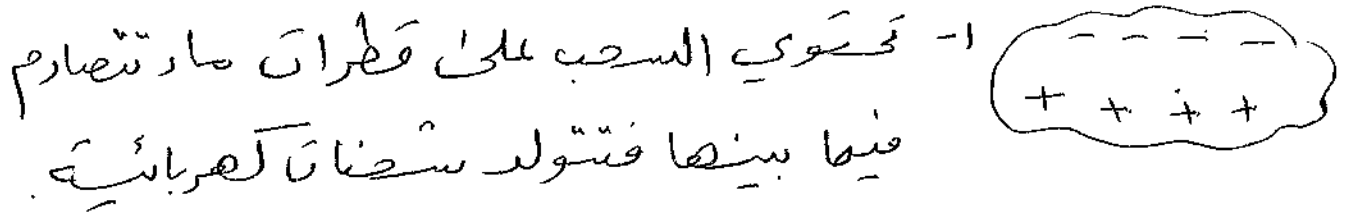 ١- تحتوي السحب على قطرات ماء تتصادم
فيما بينها فتتولد شحنات كهربائية.
- - - -
+ + + +